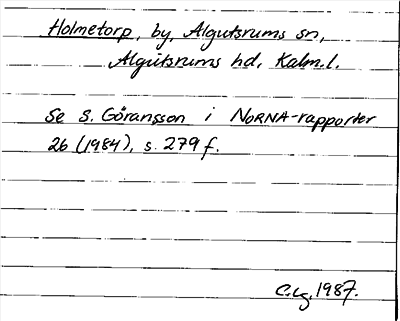 Holmetorp, by, Algutsrums sn,
Algutsrums hd, Kalm.l.
Se S. Göransson i NORNA-rapporter
26 (1984), s. 279 f.
C.Lg. 1987.